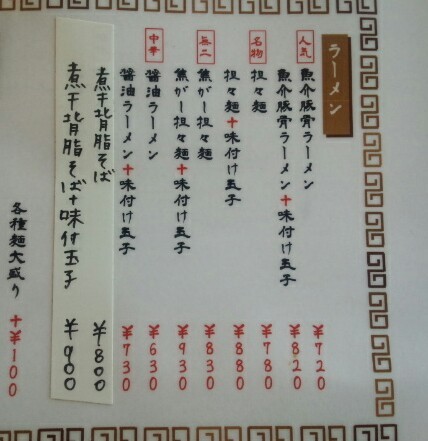 ラーメン
人気
魚介豚骨ラーメン ¥720
魚介豚骨ラーメン+味付け玉子 ¥820
名物
担々麺 ¥780
担々麺+味付け玉子 ¥880
無二
焦がし担々麺 ¥830
焦がし担々麺+味付け玉子 ¥930
中華
醤油ラーメン ¥630
醤油ラーメン+味付け玉子 ¥730
煮干背脂そば ¥800
煮干背脂そば+味付玉子 ¥900
各種麺大盛り +¥100